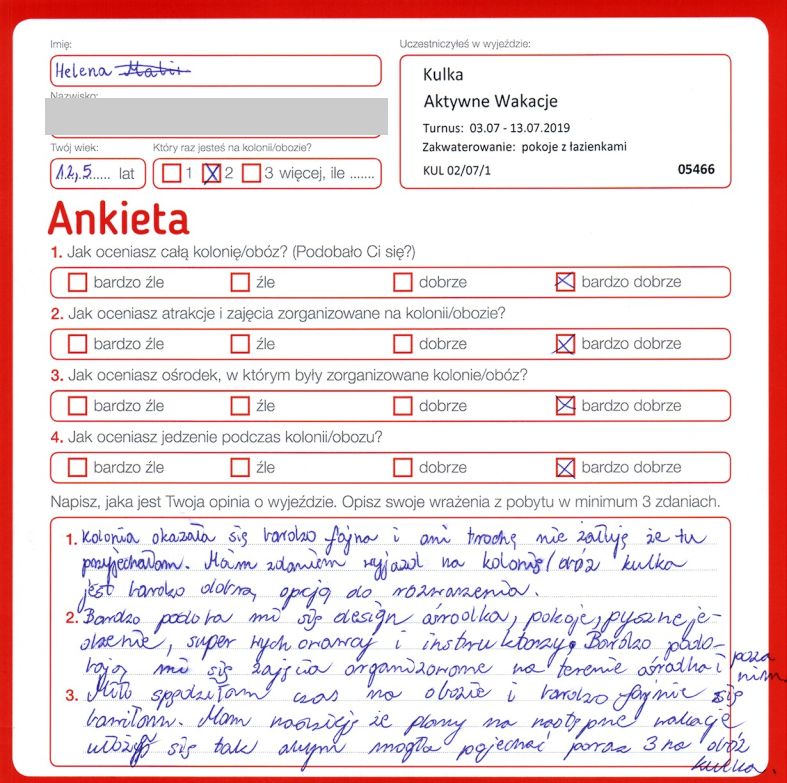 Imię:
Uczestniczyłeś w wyjeździe:
Helena
Kulka
Aktywne Wakacje
Nazwisko:
Turnus: 03.07 - 13.07.2019
Zakwaterowanie: pokoje z łazienkami
KUL 02/07/1 05466
Twój wiek: Który raz jesteś na kolonii/obozie?
12,5 lat 1 2 3 więcej, ile .......
Ankieta
1. Jak oceniasz całą kolonię/obóz? (Podobało Ci się?)
bardzo źle źle dobrze bardzo dobrze
2. Jak oceniasz atrakcje i zajęcia zorganizowane na kolonii/obozie?
bardzo źle źle dobrze bardzo dobrze
3. Jak oceniasz ośrodek, w którym były zorganizowane kolonie/obóz?
bardzo źle źle dobrze bardzo dobrze
4. Jak oceniasz jedzenie podczas kolonii/obozu?
bardzo źle źle dobrze bardzo dobrze
Napisz, jaka jest Twoja opinia o wyjeździe. Opisz swoje wrażenia z pobytu w minimum 3 zdaniach.
1. Kolonia okazała się bardzo fajna i ani trochę nie żałuję że tu
przyjechałam. Moim zdaniem wyjazd na kolonię/obóz kulka
jest bardzo dobrą opcją do rozważenia.
2. Bardzo podoba mi się design ośrodka, pokoje, pyszne je-
dzenie, super wychowawcy i instruktorzy. Bardzo podo-
bają mi się zajęcia organizowane na terenie ośrodka i poza
nim
3. Miło spędziłam czas na obozie i bardzo fajnie się
bawiłam. Mam nadzieję że plany na następne wakacje
ułożą się tak abym mogła pojechać poraz 3 na obóz
kulka.